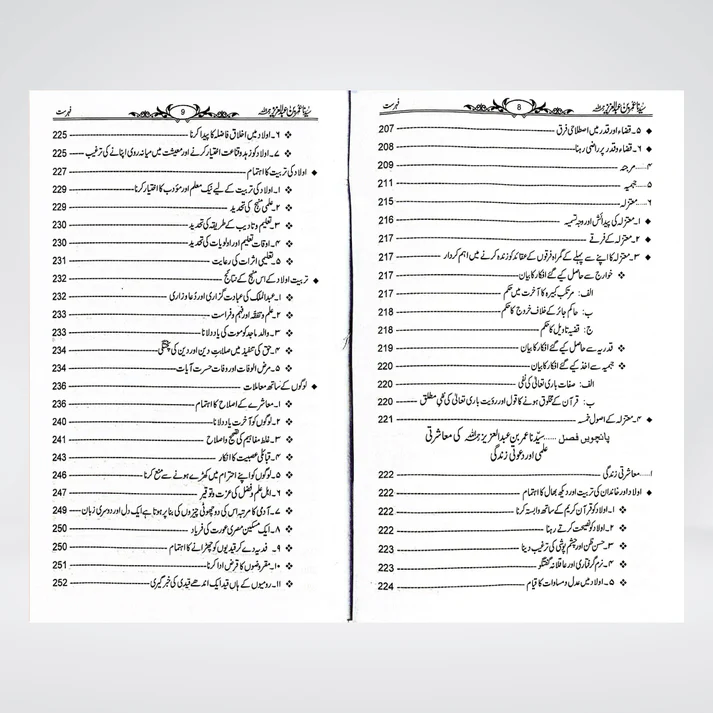 سیدنا عمر بن عبدالعزیز رحمہ اللہ 8 فہرست
◆ ۵۔ قضاء اور قدر میں اصطلاحی فرق 207
◆ ۶۔ قضاء وقدر پر راضی رہنا 208
۴..... مرجئہ 209
۵..... جہمیہ 211
۶..... معتزلہ 215
◆ ۱۔ معتزلہ کی پیدائش اور وجہ تسمیہ 216
◆ ۲۔ معتزلہ کے فرقے 217
◆ ۳۔ معتزلہ کا اپنے سے پہلے کے گمراہ فرقوں کے عقائد کو زندہ کرنے میں اہم کردار 217
❖ خوارج سے حاصل کیے گئے افکار کا بیان 217
الف: مرتکب کبیرہ کا آخرت میں حکم 217
ب: حاکم جائر کے خلاف خروج کا حکم 218
ج: قضیۂ تاویل کا حکم 218
❖ قدریہ سے حاصل کیے گئے افکار کا بیان 219
❖ جہمیہ سے اخذ کیے گئے افکار کا بیان 220
الف: صفات باری تعالیٰ کی نفی 220
ب: قرآن کے مخلوق ہونے کا قول اور رؤیت باری تعالیٰ کی نفی مطلق 220
◆ ۴۔ معتزلہ کے اصول خمسہ 221
پانچویں فصل ..... سیّدنا عمر بن عبدالعزیز رحمہ اللہ کی معاشرتی
علمی اور دعوتی زندگی
۱..... معاشرتی زندگی 222
◆ اولاد اور خاندان کی تربیت اور دیکھ بھال کا اہتمام 222
❖ ۱۔ اولاد کو قرآن کریم کے ساتھ وابستہ کرنا 222
❖ ۲۔ اولاد کو نصیحت کرتے رہنا 222
❖ ۳۔ حسن ظن اور چشم پوشی کی ترغیب دینا 223
❖ ۴۔ نرم گرفتاری اور عاقلانہ گفتگو 223
❖ ۵۔ اولاد میں عدل و مساوات کا قیام 224
سیدنا عمر بن عبدالعزیز رحمہ اللہ 9 فہرست
❖ ۶۔ اولاد میں اخلاق فاضلہ کا پیدا کرنا 225
❖ ۷۔ اولاد کو زہد و قناعت اختیار کرنے اور معیشت میں میانہ روی اپنانے کی ترغیب 225
◆ اولاد کی تربیت کا اہتمام 227
❖ ۱۔ اولاد کی تربیت کے لیے نیک معلم اور مؤدب کا اختیار کرنا 229
❖ ۲۔ علمی منہج کی تحدید 229
❖ ۳۔ تعلیم و تادیب کے طریقہ کی تحدید 230
❖ ۴۔ اوقات تعلیم اور اولویات کی تحدید 230
❖ ۵۔ تعلیمی اثرات کی رعایت 231
◆ تربیت اولاد کے اس منہج کے نتائج 232
❖ ۱۔ عبدالملک کی عبادت گزاری اور دُعا و زاری 232
❖ ۲۔ علم و تفقہ اور فہم و فراست 233
❖ ۳۔ والد ماجد کو موت کی یاد دلانا 233
❖ ۴۔ حق کی تنفیذ میں صلابتِ دین اور دین کی پختگی 234
❖ ۵۔ مرض الوفات اور وفات حسرت آیات 234
◆ لوگوں کے ساتھ معاملات 236
❖ ۱۔ معاشرے کے اصلاح کا اہتمام 236
❖ ۲۔ لوگوں کو آخرت یاد دلانا 240
❖ ۳۔ غلط مفاہیم کی تصحیح و اصلاح 241
❖ ۴۔ قبائلی عصبیت کا انکار 243
❖ ۵۔ لوگوں کو اپنے احترام میں کھڑے ہونے سے منع کرنا 246
❖ ۶۔ اہل علم و فضل کی عزت و توقیر 247
❖ ۷۔ آدمی کا مرتبہ اس کی دو چھوٹی چیزوں کی بنا پر ہوتا ہے ایک دل اور دوسری زبان 249
❖ ۸۔ ایک مسکین مصری عورت کی فریاد 250
❖ ۹۔ فدیہ دے کر قیدیوں کو چھڑانے کا اہتمام 250
❖ ۱۰۔ مقروضوں کا قرض ادا کرنا 251
❖ ۱۱۔ رومیوں کے ہاں قید ایک اندھے قیدی کی خبر گیری 252